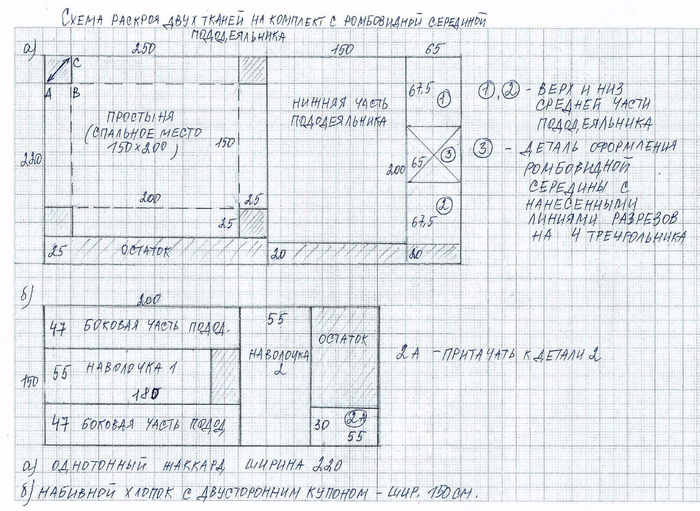 СХЕМА РАСКРОЯ ДВУХ ТКАНЕЙ НА КОМПЛЕКТ С РОМБОВИДНОЙ СЕРЕДИНОЙ
ПОДОДЕЯЛЬНИКА
а) 250 150 65
С
А В
ПРОСТЫНЯ
(СПАЛЬНОЕ МЕСТО
150×200)
150
220
200
25
25
25 ОСТАТОК
НИЖНЯЯ ЧАСТЬ
ПОДОДЕЯЛЬНИКА
200
20
67,5
1
65 3
2
67,5
20
1, 2 - ВЕРХ И НИЗ
СРЕДНЕЙ ЧАСТИ
ПОДОДЕЯЛЬНИКА
3 - ДЕТАЛЬ ОФОРМЛЕНИЯ
РОМБОВИДНОЙ
СЕРЕДИНЫ С
НАНЕСЕННЫМИ
ЛИНИЯМИ РАЗРЕЗОВ
НА 4 ТРЕУГОЛЬНИКА
б) 200
47 БОКОВАЯ ЧАСТЬ ПОДОД.
150
55 НАВОЛОЧКА 1
180
47 БОКОВАЯ ЧАСТЬ ПОДОД
55
НАВОЛОЧКА
2
ОСТАТОК
30 2А
55
2А - ПРИТАЧАТЬ К ДЕТАЛИ 2
а) ОДНОТОННЫЙ ЖАККАРД ШИРИНА 220
б) НАБИВНОЙ ХЛОПОК С ДВУСТОРОННИМ КУПОНОМ - ШИР. 150 СМ.